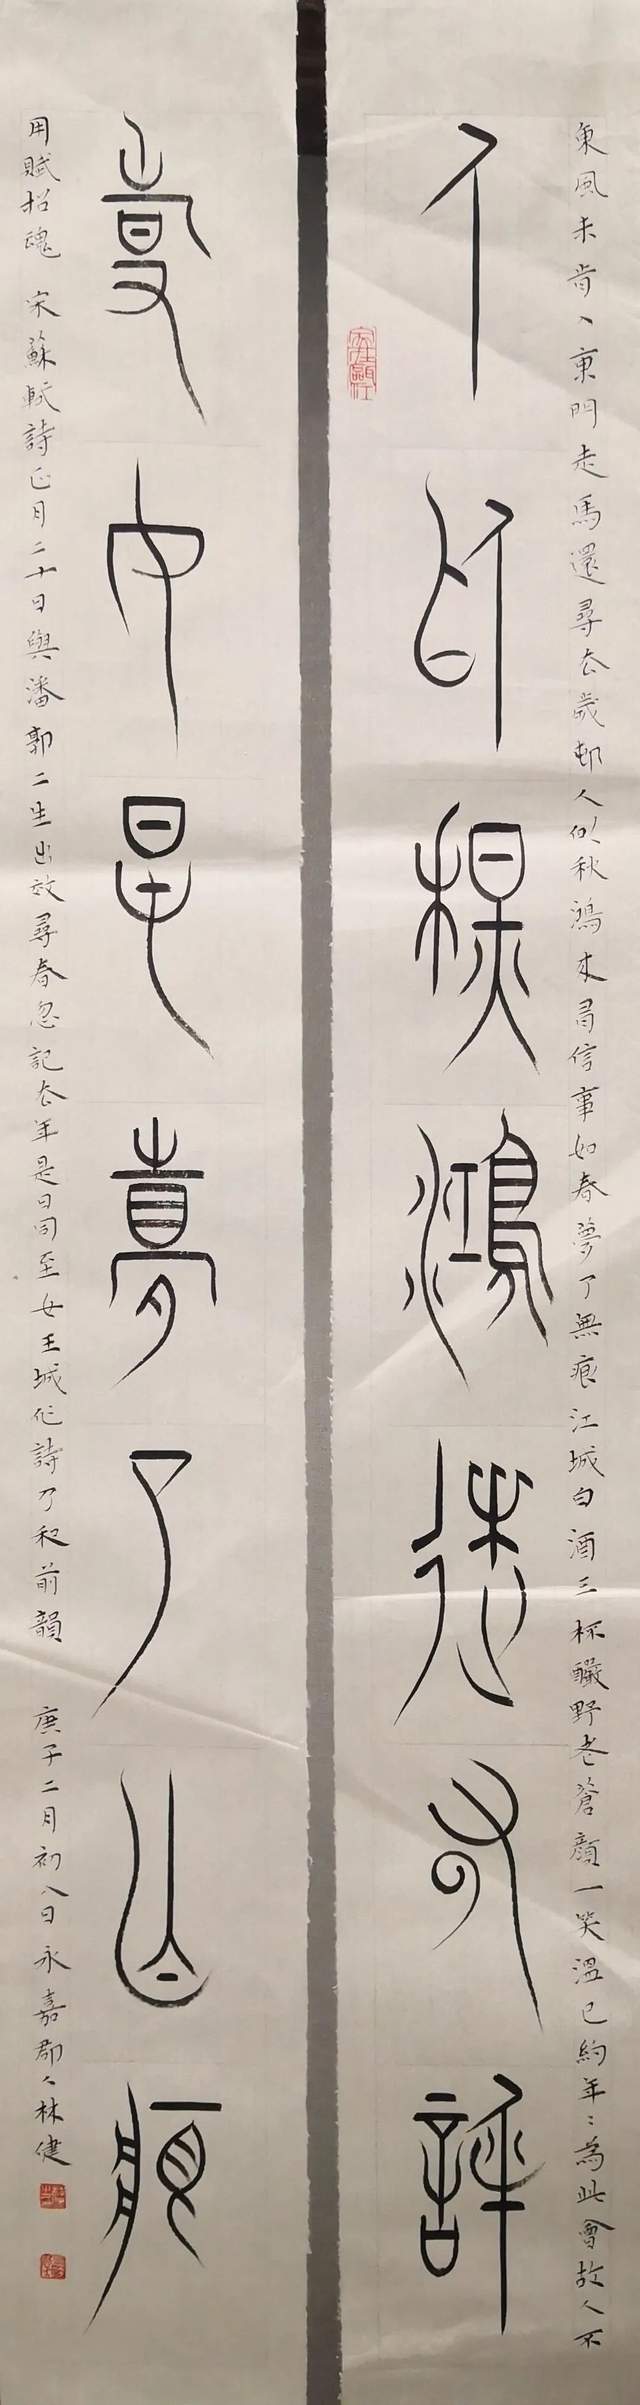 東風未肯入東門走馬還尋去歲邨人似秋鴻來有信事如春夢了無痕江城白酒三杯釅野老蒼顏一笑溫已約年〻為此會故人不
人似秋鴻來有信
事如春夢了無痕
用賦招魂 宋蘇軾詩正月二十日與潘郭二生出郊尋春忽記去年是日同至女王城作詩乃和前韻 庚子二月初八日永嘉郡人林健